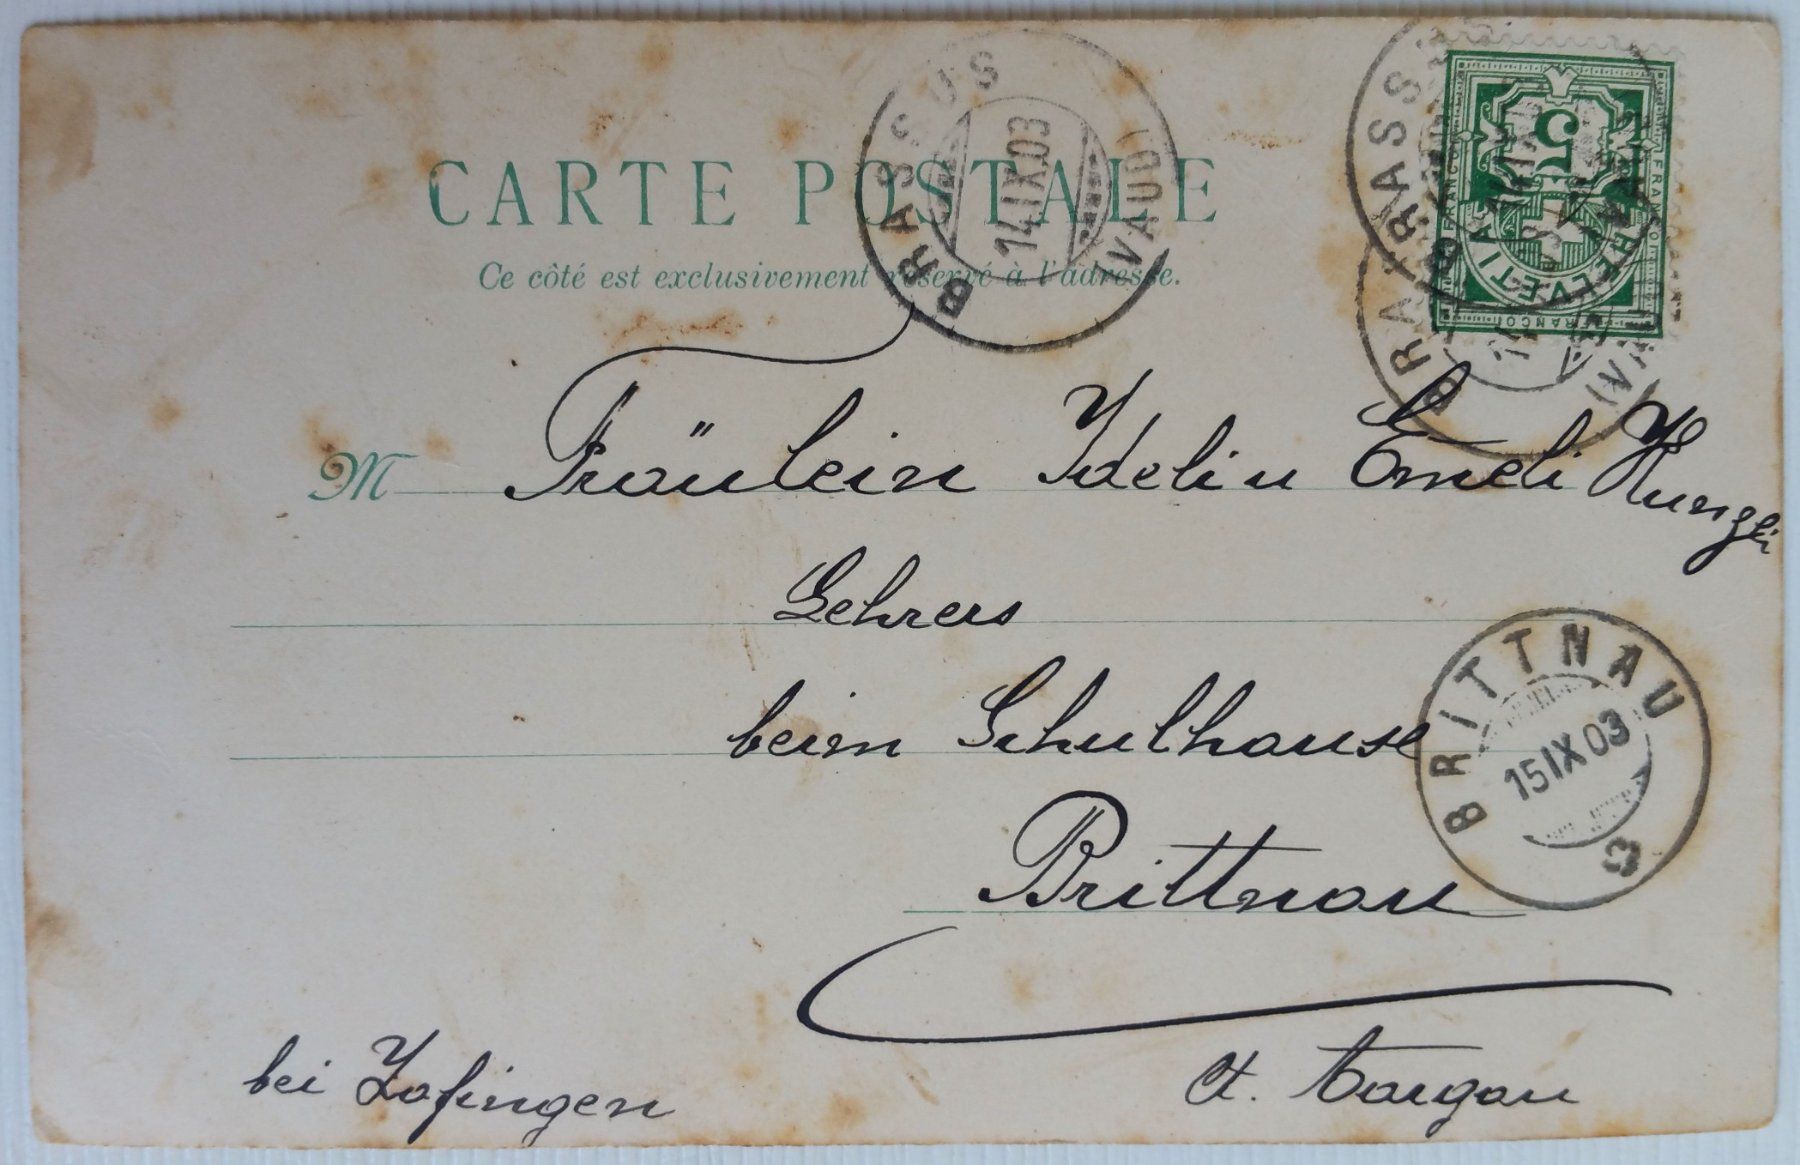 BRASSUS (VAUD)
14 IX 03
BRASSUS
BRASSUS (VAUD)
14 IX
FRANCO FRANCO FRANCO
5
HELVETIA
CARTE POSTALE
Ce côté est exclusivement réservé à l'adresse.
M Fräulein Idelin Emeli Kunzli
Lehrers
beim Schulhause
BRITTNAU
15 IX 03
Brittnau
bei Zofingen
Ct. Aargau